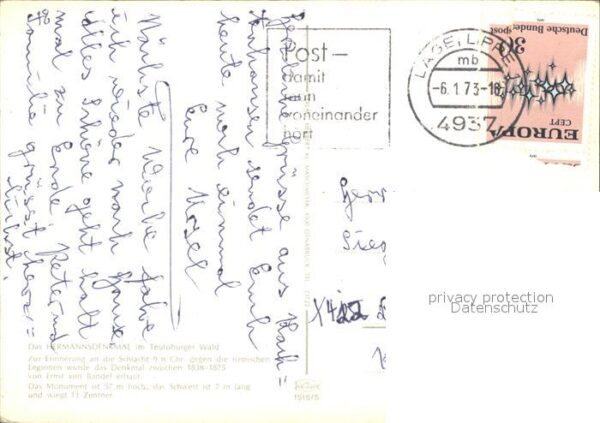 Herzliche Grüsse aus Kach=
tenhausen sendet Euch
heute noch einmal
Eure Ursel
Nächste Woche fahre
ich wieder nach Hause
alles Schöne geht halt
mal zu Ende. Peter und
Familie grüsst herz=
lichst.
Post—
damit
man
voneinander
hört
LAGE, LIPPE
mb
-6.1.73-18
4937
Deutsche Bundespost
30
EUROPA
CEPT
Geor
Sieg
privacy protection
Datenschutz
Das HERMANNSDENKMAL im Teutoburger Wald
Zur Erinnerung an die Schlacht 9 n. Chr. gegen die römischen
Legionen wurde das Denkmal zwischen 1838-1875
von Ernst von Bandel erbaut.
Das Monument ist 57 m hoch, das Schwert ist 7 m lang
und wiegt 11 Zentner
1516/5